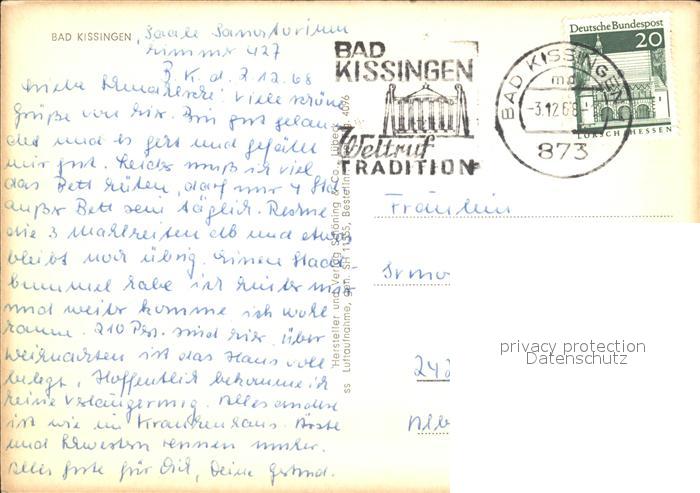 BAD KISSINGEN, Saale Sanatorium
Zimmer 427
B. K. d. 2.12.68
Liebe Viele schöne
Grüße von hier. Bin gut gelan-
det und es geht und gefällt
mir gut. Leider muß ich viel
das Bett hüten, darf nur 4 Std.
außer Bett sein täglich. Rechne
die 3 Mahlzeiten ab und etwas
bleibt noch übrig. Einen Stadt-
bummel habe ich hinter mir
und weiter komme ich wohl
kaum. 210 Pers. sind hier, über
Weihnachten ist das Haus voll
belegt. Hoffentlich bekomme ich
keine Verlängerung. Alles andere
ist wie im Krankenhaus. Ärzte
und Schwestern rennen umher.
Alles Gute für Dich, Deine Gertrud.
Hersteller und Verlag Schöning & Co., Lübeck
ss Luftaufnahme, gen. SH 11355, Bestellnr. 4096
BAD
KISSINGEN
Weltruf
TRADITION
BAD KISSINGEN
mc
-3.12.68
873
Deutsche Bundespost
20
LORSCH/HESSEN
Fräulein
privacy protection
Datenschutz